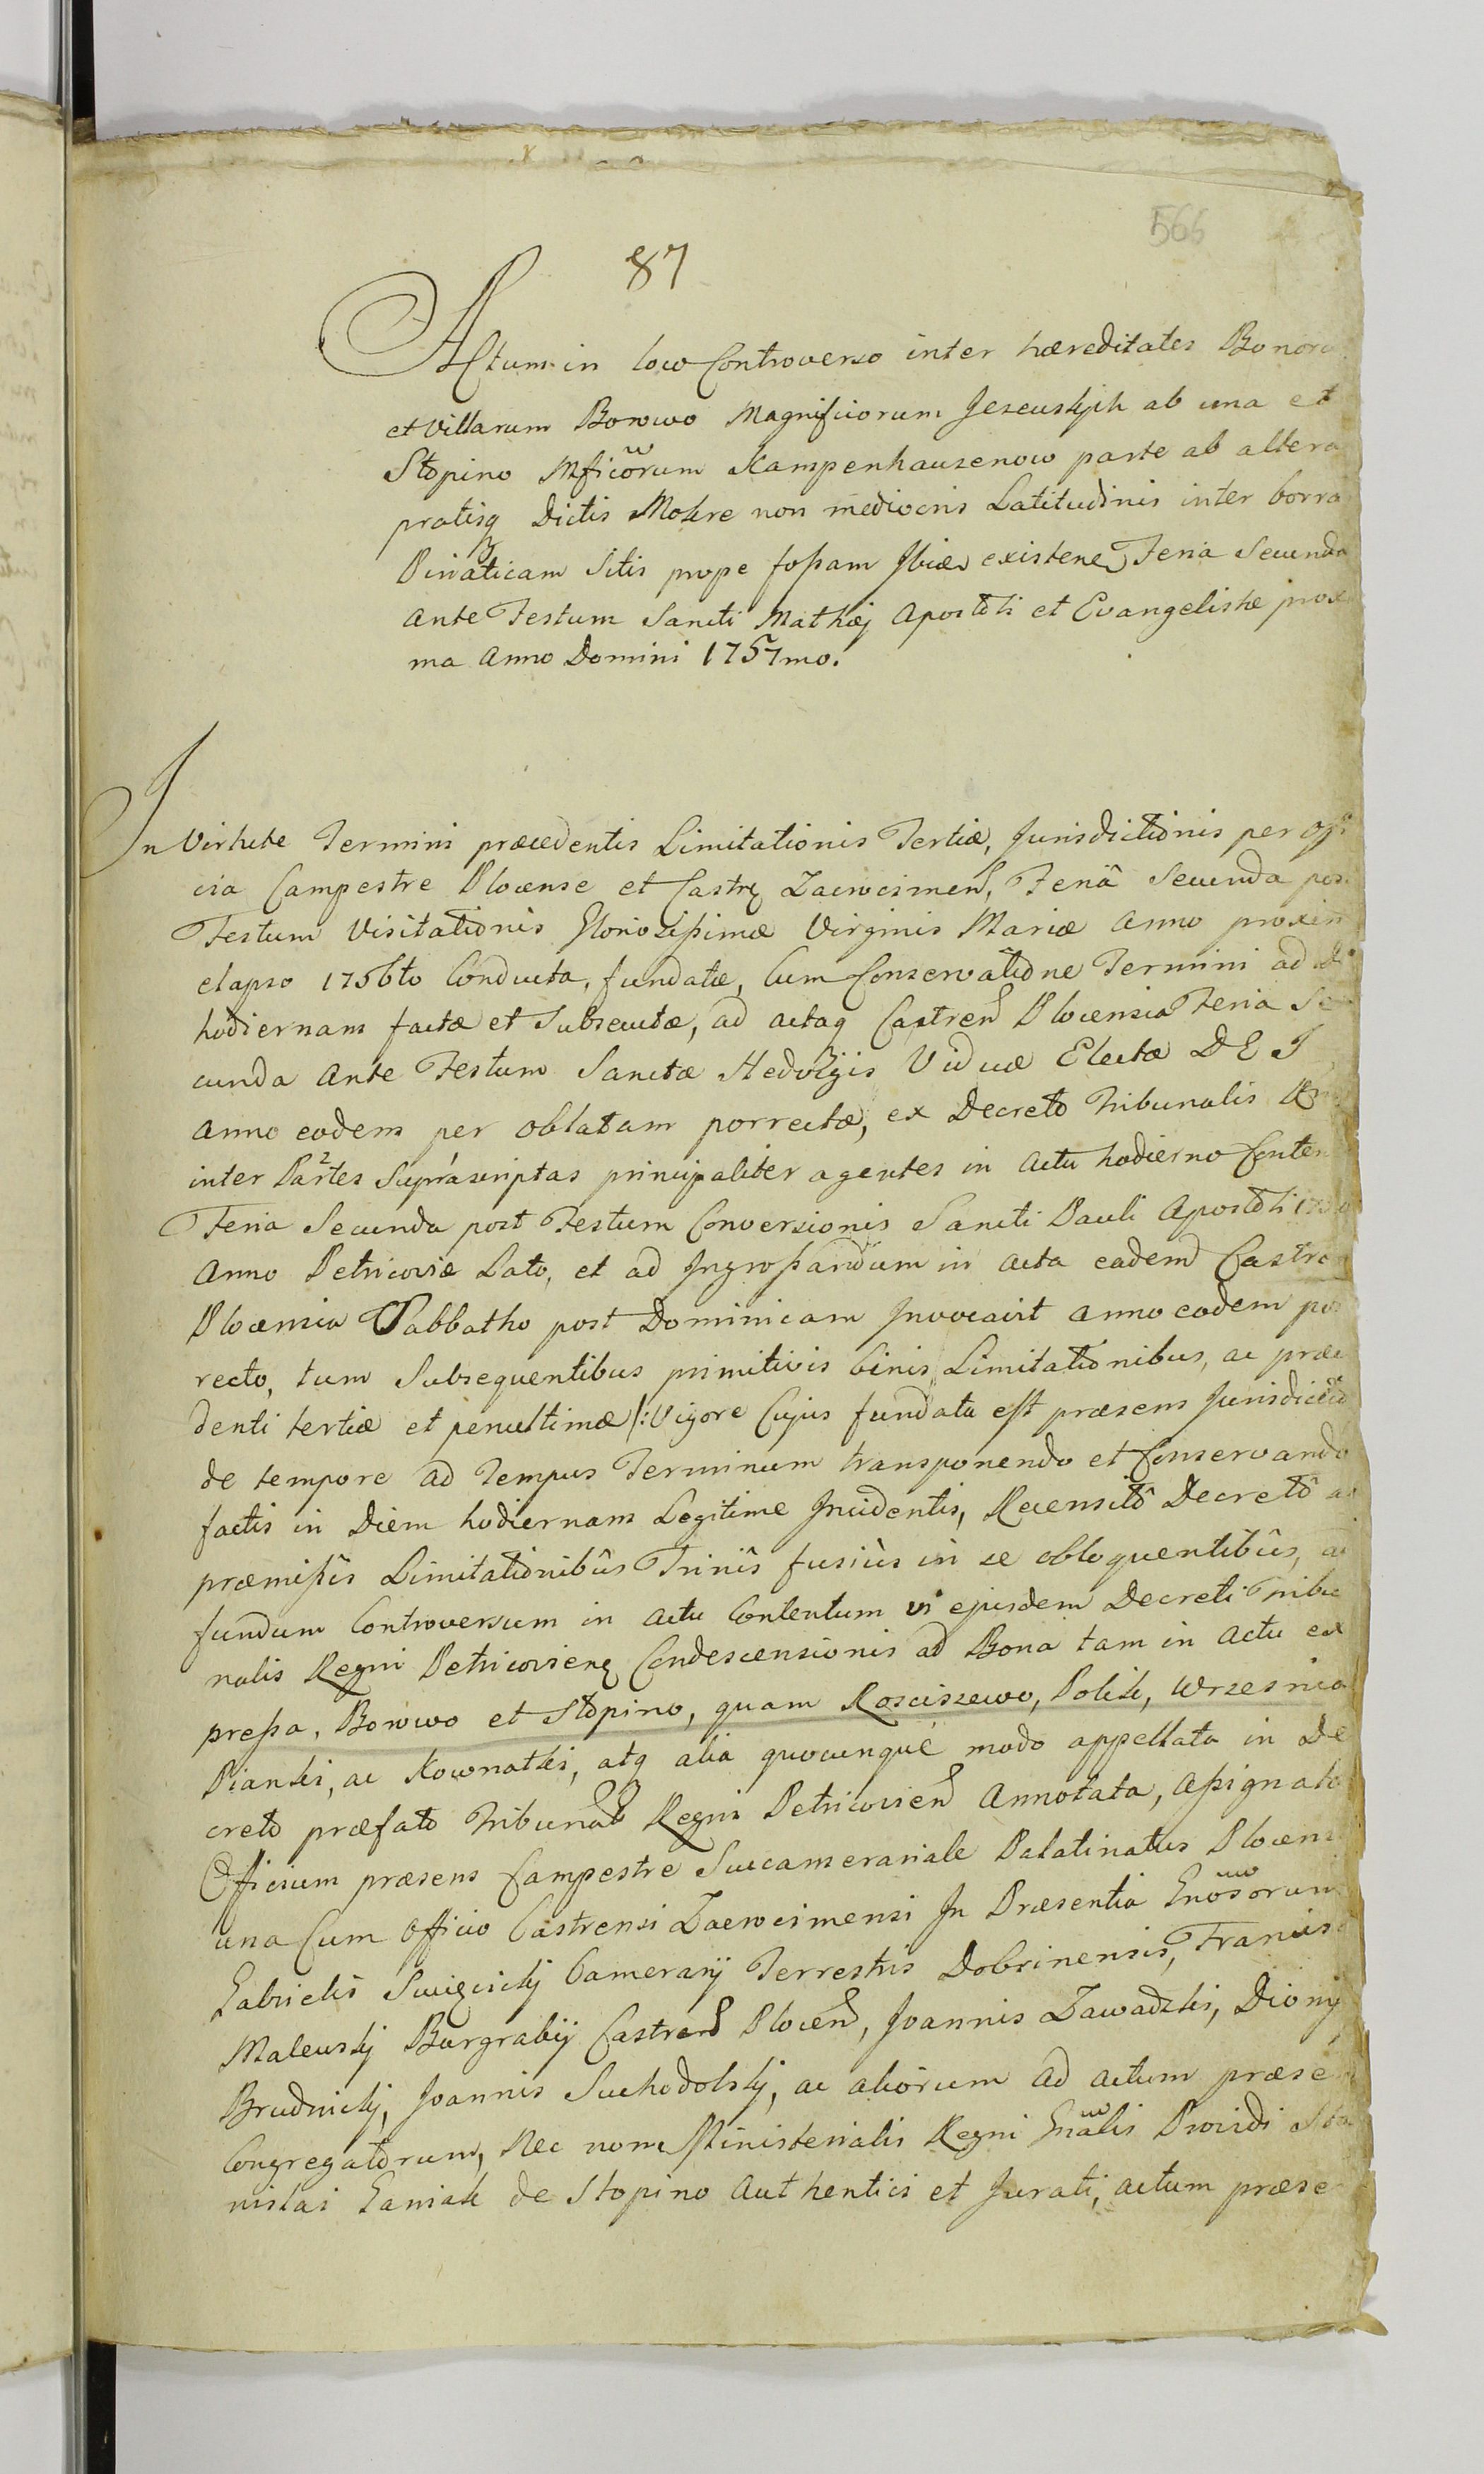 566
87
Actum in loco Controverso inter hæreditates Bonoru
et Villarum Borowo Magnificorum Jezewskych ab una et
Stopino Mficorum Kampenhauzenow parte ab altera
pratisq Dictis Mokre non mediocris Latitudinis inter borra
Pinaticam Sitis prope foßam Ibidē existenē Feria Secunda
Ante Festum Sancti Mathæj Apostoli et Evangelistæ prox
ma Anno Domini 1757mo.
In Virtute Termini præcedentis Limitationis Tertiæ, Jurisdictionis per offi
cia Campestre Plocense et Castrē Zaewcimens, Feriâ Secunda pos
Festum Visitationis Gloriosißimæ Virginis Mariæ Anno proxim
elapso 1756to Conducta, fundatæ, Cum Conservatione Termini ad Di
hodiernam factæ et Subsecutæ, ad actaq Castren Plocensia Feria Se
cunda Ante Festum Sanctæ Hedvigis Viduæ Electæ DEI
Anno eodem per oblatam porrectæ, ex Decreto Tribunalis R
inter Partes Suprascriptas principaliter agentes in Actu hodierno Conten
Feria Secunda post Festum Conversionis Sancti Pauli Apostoli 175
Anno Petricoviæ Lato, et ad Ingroßandum in acta eadem Castren
Plocensia Sabbatho post Dominicam Invocavit anno eodem por
recto, tum Subsequentibus primitivis binis Limitationibus, ac præce
denti tertiæ et penultimæ /: Vigore Cujus fundata est præsens Jurisdictio
de tempore ad Tempus Terminum transponendo et Conservando
factis in Diem hodiernam Legitime Incidentis, Recensitô Decretô ac
præmißîs Limitationibûs Trinîs fusiùs in se obloquentibûs, ad
fundum Controversum in Actu Contentum vi ejusdem Decreti Tribu
nalis Regni Petricovienē Condescensionis ad Bona tam in Actu ex
preßa, Borowo et Stopino, quam Kosciszewo, Polik, Wrzesnia
Pianki, ac Kownatki, atq alia quocunque modo appellata in De
creto præfato Tribunalē Regni Petricovien Annotata, Aßignato
Officium præsens Campestre Succamerariale Palatinatus Plocens
una Cum Officio Castrensi Zaewcimensi In Præsentia Gnosorum
Gabrielis Swięcickj Camerarij Terrestris Dobrinensis, Francisc
Malewskj Burgrabij Castren Plocen, Joannis Zawadzki, Diony
Brudnickj, Joannis Suchodolskj, ac aliorum ad actum præsen
Congregatorum, Nec non Ministerialis Regni Gnalis Providi Sta
nislai Ganiak de Stopino Authentici et Jurati, actum præse